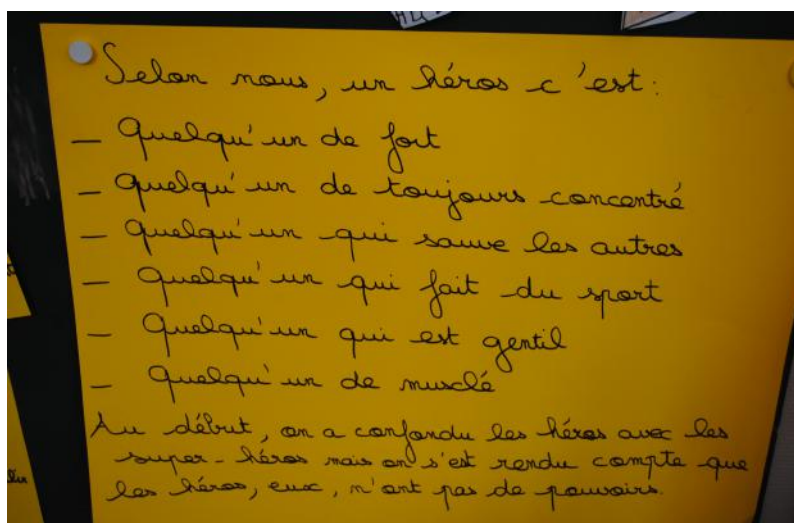 Selon nous, un héros c'est :
_ Quelqu'un de fort
_ Quelqu'un de toujours concentré
_ Quelqu'un qui sauve les autres
_ Quelqu'un qui fait du sport
_ Quelqu'un qui est gentil
_ Quelqu'un de musclé
Au début, on a confondu les héros avec les
super-héros mais on s'est rendu compte que
les héros, eux, n'ont pas de pouvoirs.